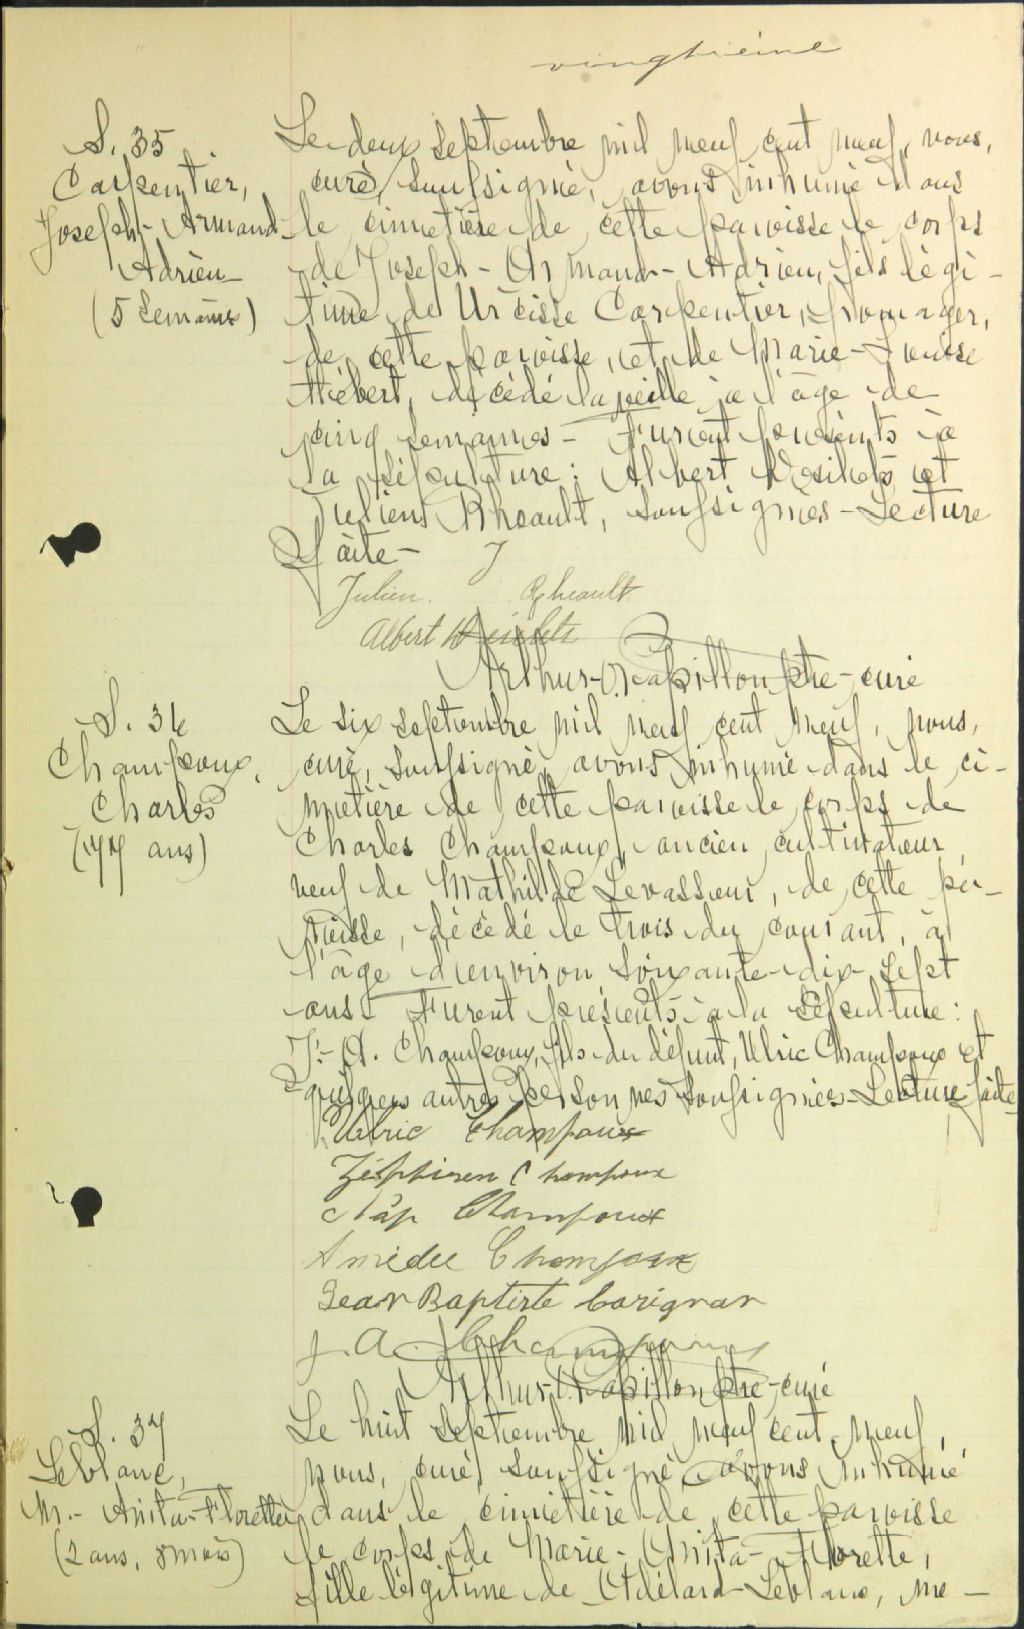 vingtième
S. 35
Carpentier,
Joseph-Armand
Adrien
(5 semaines)
Le deux septembre mil neuf cent neuf, nous,
curé, soussigné, avons inhumé dans
le cimetière de cette paroisse le corps
de Joseph-Armand-Adrien, fils légi-
time de Urcisse Carpentier, fromager,
de cette paroisse, et de Marie-Louise
Hébert, décédé la veille à l'âge de
cinq semaines - Furent présents à
la sépulture : Albert Désilets et
Julien Rheault, soussignés - Lecture
faite -
Julien Rheault
Albert Désilets
Arthur-O. Papillon ptre-curé
S. 36
Champoux,
Charles
(77 ans)
Le six septembre mil neuf cent neuf, nous,
curé, soussigné, avons inhumé dans le ci-
metière de cette paroisse le corps de
Charles Champoux, ancien cultivateur,
veuf de Mathilde Levasseur, de cette pa-
roisse, décédé le trois du courant, à
l'âge d'environ soixante-dix-sept
ans - Furent présents à la sépulture :
J.-A. Champoux, fils du défunt, Ulric Champoux et
quelques autres personnes soussignées - Lecture faite
Ulric Champoux
Zéphiren Champoux
Nap Champoux
Amédée Champoux
Jean Baptiste Carignan
J. A. Champoux
Arthur-O. Papillon ptre-curé
S. 37
Leblanc,
M.- Anita-Florette
(2 ans, 8 mois)
Le huit septembre mil neuf cent neuf,
nous, curé, soussigné, avons inhumé
dans le cimetière de cette paroisse
le corps de Marie-Anita-Florette,
fille légitime de Adélard Leblanc, me-